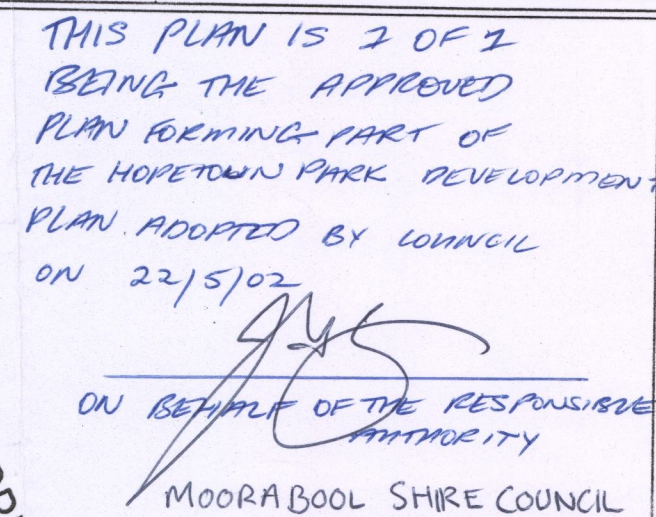 THIS PLAN IS 1 OF 1
BEING THE APPROVED
PLAN FORMING PART OF
THE HOPETOUN PARK DEVELOPMENT
PLAN ADOPTED BY COUNCIL
ON 22/5/02
ON BEHALF OF THE RESPONSIBLE
AUTHORITY
MOORABOOL SHIRE COUNCIL